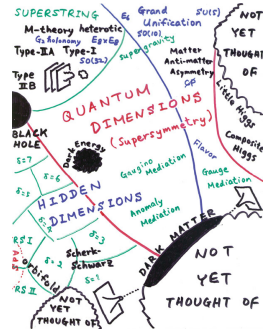 SUPERSTRING
M-theory heterotic
G₂ holonomy E₈×E₈
Type-IIA Type-I
SO(32)
Type
IIB
E₆ Grand SU(5)
Unification
SO(10)
supergravity
Matter
Anti-matter
Asymmetry
CP
NOT
YET
THOUGHT
OF
Little Higgs
Composite
Higgs
QUANTUM
DIMENSIONS
(Supersymmetry)
BLACK
HOLE
Dark Energy
Flavor
Gaugino
Mediation
Gauge
Mediation
Anomaly
Mediation
δ=7
δ=6
δ=5
HIDDEN
DIMENSIONS
RS I
AdS
RS II
orbifold
δ=2
Scherk-
Schwarz
δ=1
DARK MATTER
NOT YET
THOUGHT OF
NOT
YET
THOUGHT OF